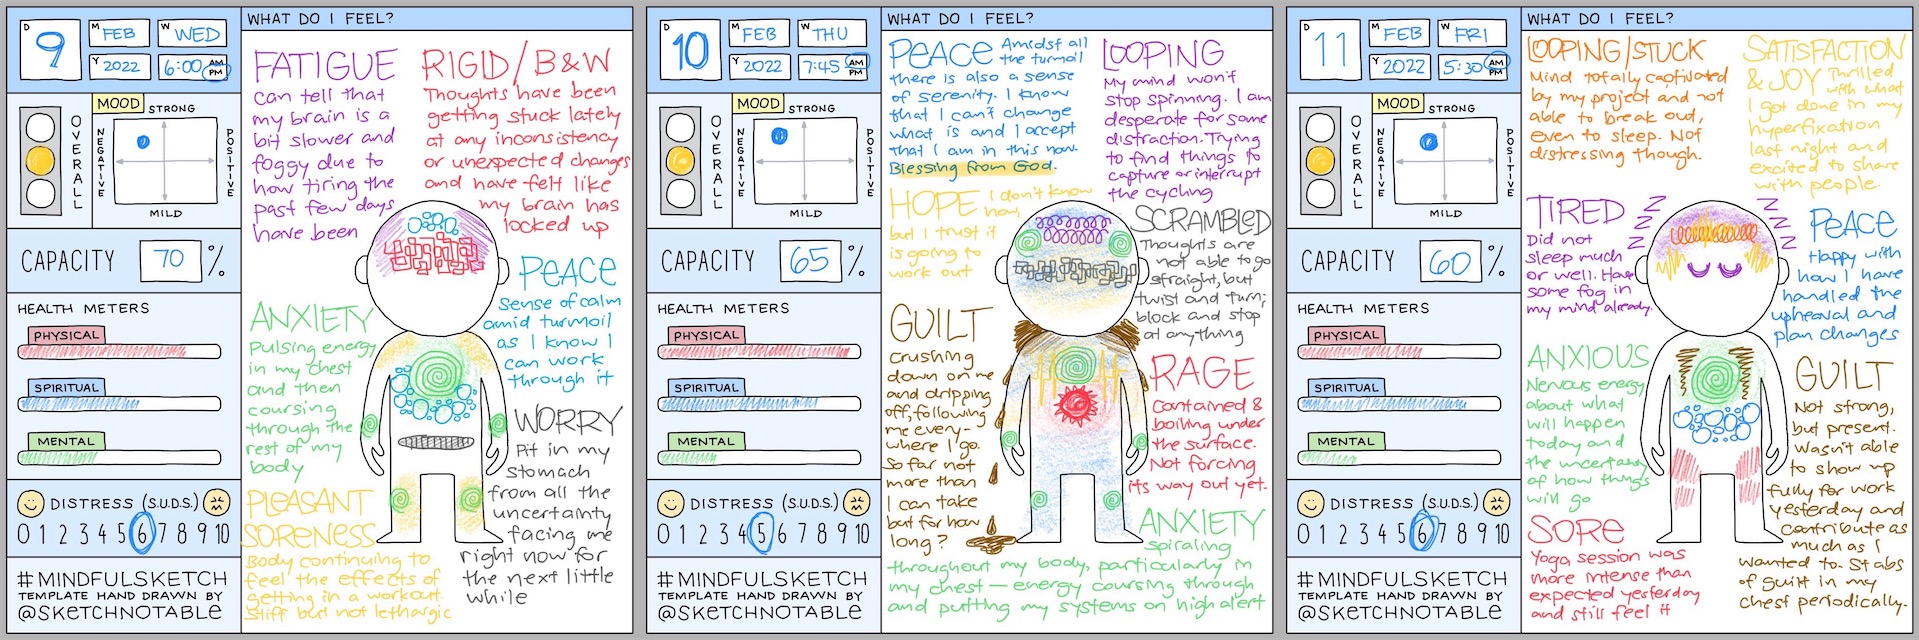 D
9
M
FEB
W
WED
Y
2022
6:00 AM
PM
MOOD
STRONG
OVERALL
NEGATIVE
POSITIVE
MILD
CAPACITY 70 %
HEALTH METERS
PHYSICAL
SPIRITUAL
MENTAL
DISTRESS (S.U.D.S.)
0 1 2 3 4 5 6 7 8 9 10
#MINDFULSKETCH
TEMPLATE HAND DRAWN BY
@SKETCHNOTABLE
WHAT DO I FEEL?
FATIGUE
Can tell that
my brain is a
bit slower and
foggy due to
how tiring the
past few days
have been
RIGID/B&W
Thoughts have been
getting stuck lately
at any inconsistency
or unexpected changes
and have felt like
my brain has
locked up
PEACE
Sense of calm
amid turmoil
as I know I
can work
through it
ANXIETY
Pulsing energy
in my chest
and then
coursing
through the
rest of my
body
WORRY
Pit in my
stomach
from all the
uncertainty
facing me
right now for
the next little
while
PLEASANT
SORENESS
Body continuing to
feel the effects of
getting in a workout.
Stiff but not lethargic
D
10
M
FEB
W
THU
Y
2022
7:45 AM
PM
MOOD
STRONG
OVERALL
NEGATIVE
POSITIVE
MILD
CAPACITY 65 %
HEALTH METERS
PHYSICAL
SPIRITUAL
MENTAL
DISTRESS (S.U.D.S.)
0 1 2 3 4 5 6 7 8 9 10
#MINDFULSKETCH
TEMPLATE HAND DRAWN BY
@SKETCHNOTABLE
WHAT DO I FEEL?
PEACE Amidst all
the turmoil
there is also a sense
of serenity. I know
that I can't change
what is and I accept
that I am in this now.
Blessing from God.
LOOPING
My mind won't
stop spinning. I am
desperate for some
distraction. Trying
to find things to
capture or interrupt
the cycling
HOPE I don't know
how,
but I trust it
is going to
work out
SCRAMBLED
Thoughts are
not able to go
straight, but
twist and turn;
block and stop
at anything
GUILT
Crushing
down on me
and dripping
off, following
me every-
where I go.
So far not
more than
I can take
but for how
long?
RAGE
Contained &
boiling under
the surface.
Not forcing
its way out yet.
ANXIETY
Spiraling
throughout my body, particularly in
my chest — energy coursing through
and putting my systems on high alert
D
11
M
FEB
W
FRI
Y
2022
5:30 AM
PM
MOOD
STRONG
OVERALL
NEGATIVE
POSITIVE
MILD
CAPACITY 60 %
HEALTH METERS
PHYSICAL
SPIRITUAL
MENTAL
DISTRESS (S.U.D.S.)
0 1 2 3 4 5 6 7 8 9 10
#MINDFULSKETCH
TEMPLATE HAND DRAWN BY
@SKETCHNOTABLE
WHAT DO I FEEL?
LOOPING/STUCK
Mind totally captivated
by my project and not
able to break out,
even to sleep. Not
distressing though.
SATISFACTION
& JOY Thrilled
with what
I got done in my
hyperfixation
last night and
excited to share
with people.
TIRED
Did not
sleep much
or well. Have
some fog in
my mind already.
Z Z Z
Z Z Z
PEACE
Happy with
how I have
handled the
upheaval and
plan changes
ANXIOUS
Nervous energy
about what
will happen
today and
the uncertainty
of how things
will go
GUILT
Not strong,
but present.
Wasn't able
to show up
fully for work
yesterday and
contribute as
much as I
wanted to. Stabs
of guilt in my
chest periodically.
SORE
Yoga session was
more intense than
expected yesterday
and still feel it